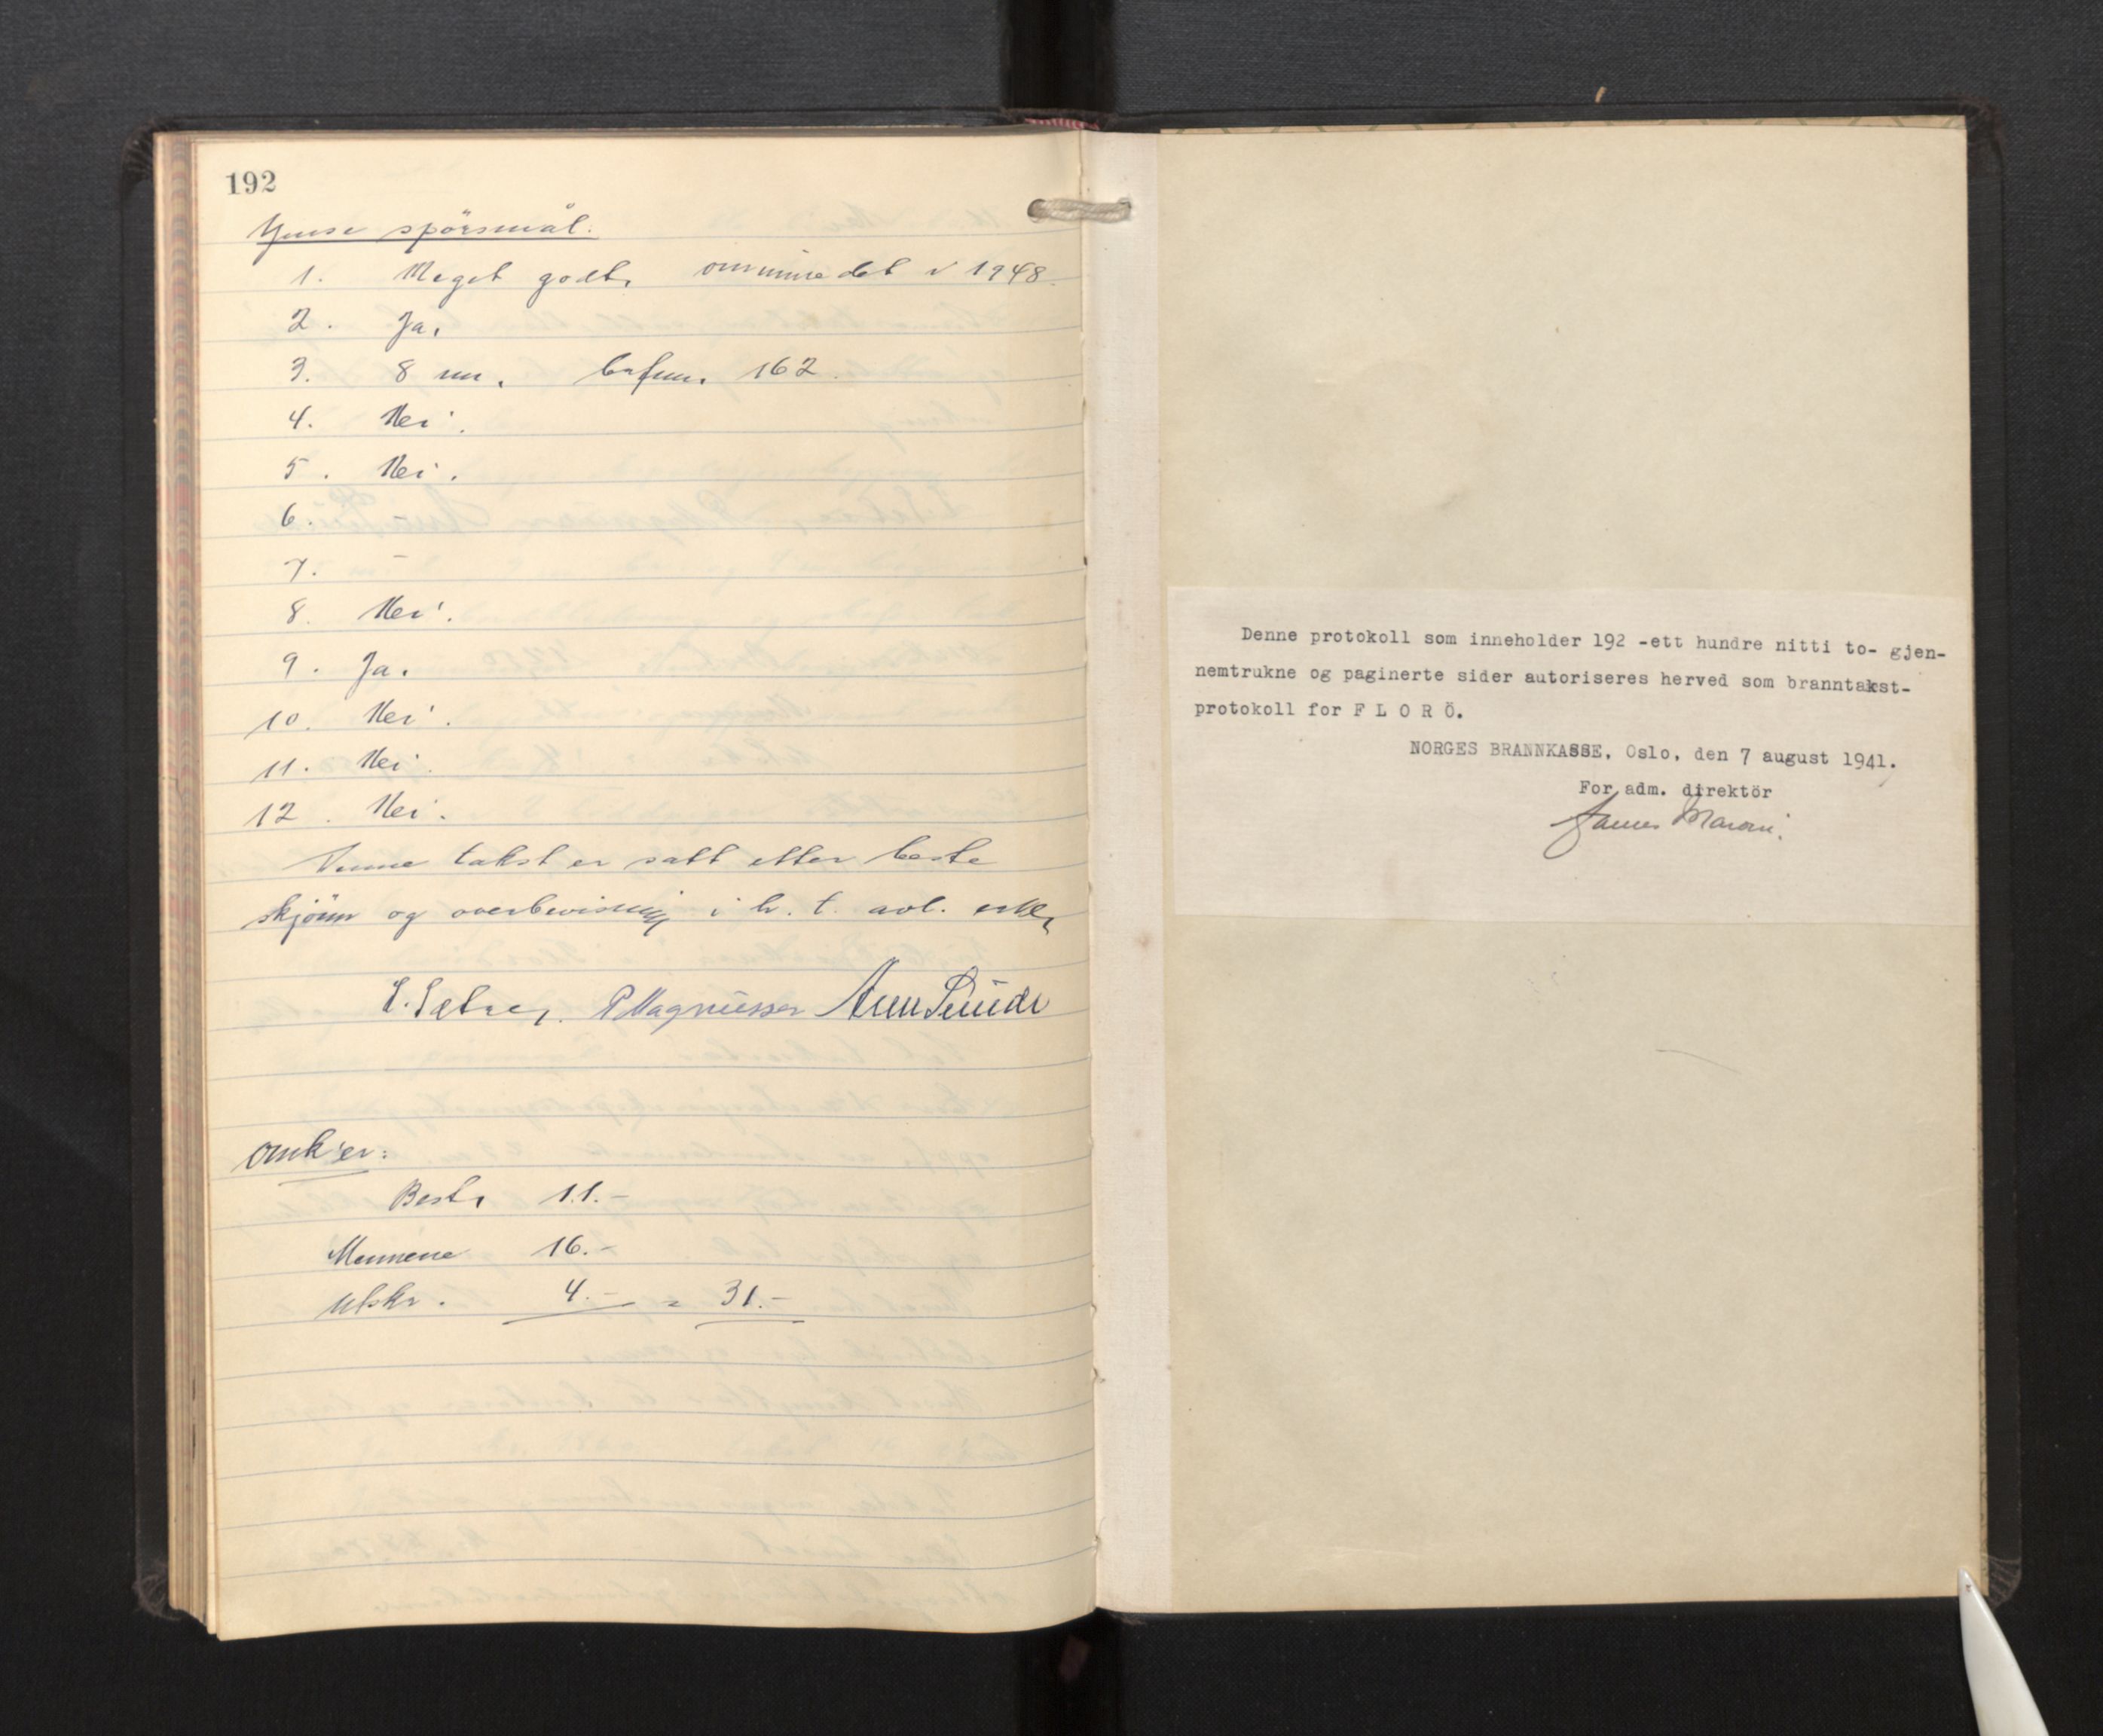 192
Ymse spörsmål.
1. Meget godt, ominnredet i 1948.
2. Ja.
3. 8 m. bofnr. 162.
4. Nei.
5. Nei.
6. -
7. -
8. Nei.
9. Ja.
10. Nei.
11. Nei.
12. Nei.
Denne takst er satt etter beste
skjönn og overbevisning i h. t. avl.
E. Sætre, P Magnussen
Omk'er:
Best, 11.-
Mennene 16.-
Utskr. 4.- = 31.-
Denne protokoll som inneholder 192 -ett hundre nitti to- gjen-
nemtrukne og paginerte sider autoriseres herved som branntakst-
protokoll for F L O R Ö.
NORGES BRANNKASSE, Oslo, den 7 august 1941.
For adm. direktör
James Maroni.